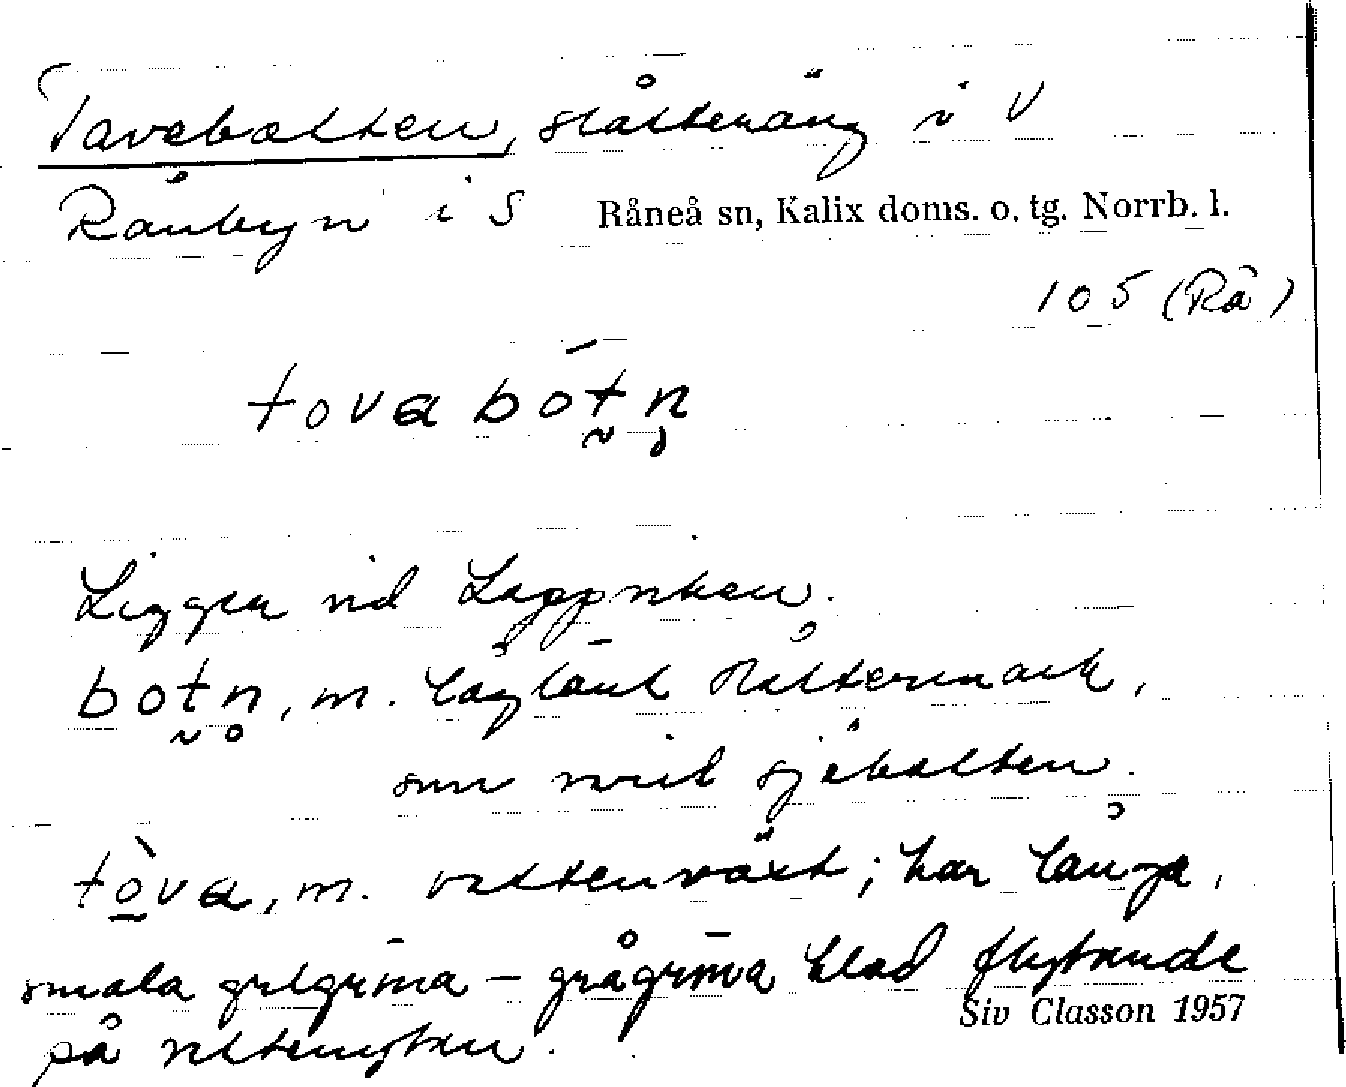 Tavebotten, slåtteräng i V
Rånbyn i S Råneå sn, Kalix doms. o. tg. Norrb. l.
105 (Rå)
tova bótn
Ligger vid Lappviken.
botn, m. låglänt slåttermark,
som invid sjöbotten.
tòva, m. vattenväxt; har långa,
smala gulgröna – grågröna blad flytande
Siv Classon 1957
på vattenytan.